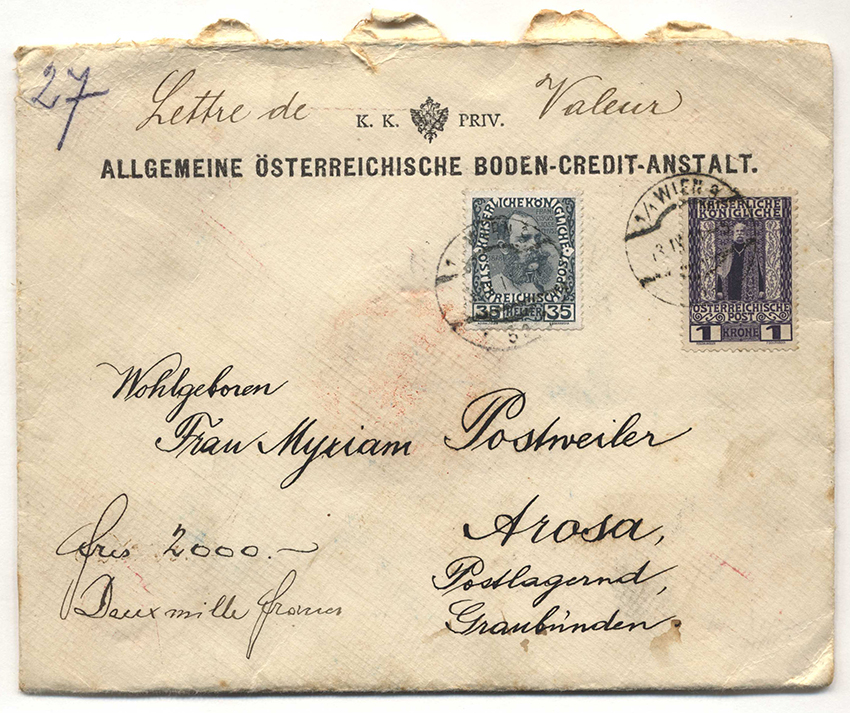 27
Lettre de Valeur
K. K. PRIV.
ALLGEMEINE ÖSTERREICHISCHE BODEN-CREDIT-ANSTALT.
1/1 WIEN 9
KAISERLICHE KÖNIGLICHE
ÖSTERREICHISCHE POST
1 KRONE 1
KAISERLICHE KÖNIGLICHE
ÖSTERREICHISCHE POST
35 HELLER 35
Wohlgeboren
Frau Myriam Postweiler
Arosa,
Postlagernd,
Graubünden.
frcs 2000.—
Deux mille francs